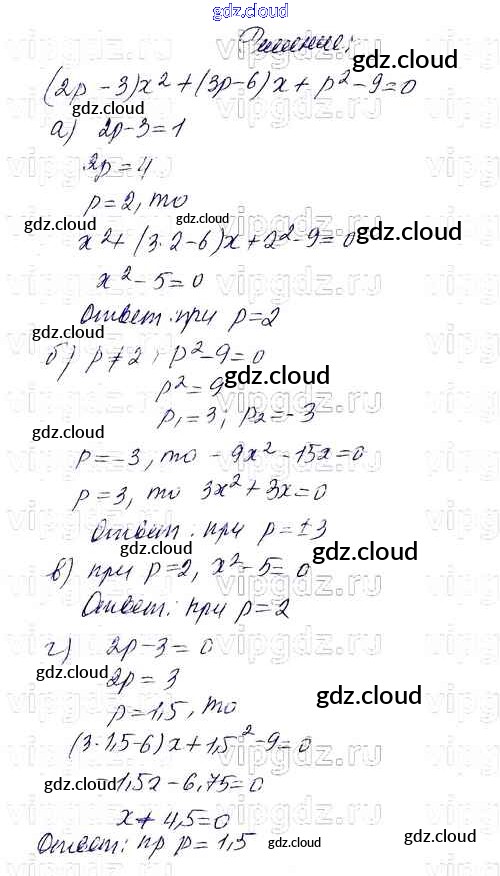 gdz.cloud
Решение:
gdz.cloud
(2p - 3)x² + (3p - 6)x + p² - 9 = 0
gdz.cloud
а) 2p - 3 = 1
gdz.cloud
2p = 4
p = 2, то
gdz.cloud gdz.cloud
x² + (3·2 - 6)x + 2² - 9 = 0
gdz.cloud
x² - 5 = 0
gdz.cloud
Ответ: при p = 2
gdz.cloud
б) p ≠ 2; p² - 9 = 0
p² = 9
gdz.cloud
p₁ = 3; p₂ = -3
gdz.cloud
p = -3, то - 9x² - 15x = 0
p = 3, то 3x² + 3x = 0
gdz.cloud
Ответ: при p = ±3
gdz.cloud
в) при p = 2, x² - 5 = 0
gdz.cloud
Ответ: при p = 2
г) 2p - 3 = 0
gdz.cloud
2p = 3
gdz.cloud
p = 1,5, то
(3·1,5 - 6)x + 1,5² - 9 = 0
gdz.cloud
-1,5x - 6,75 = 0
gdz.cloud
x + 4,5 = 0
gdz.cloud
Ответ: пр p = 1,5
gdz.cloud